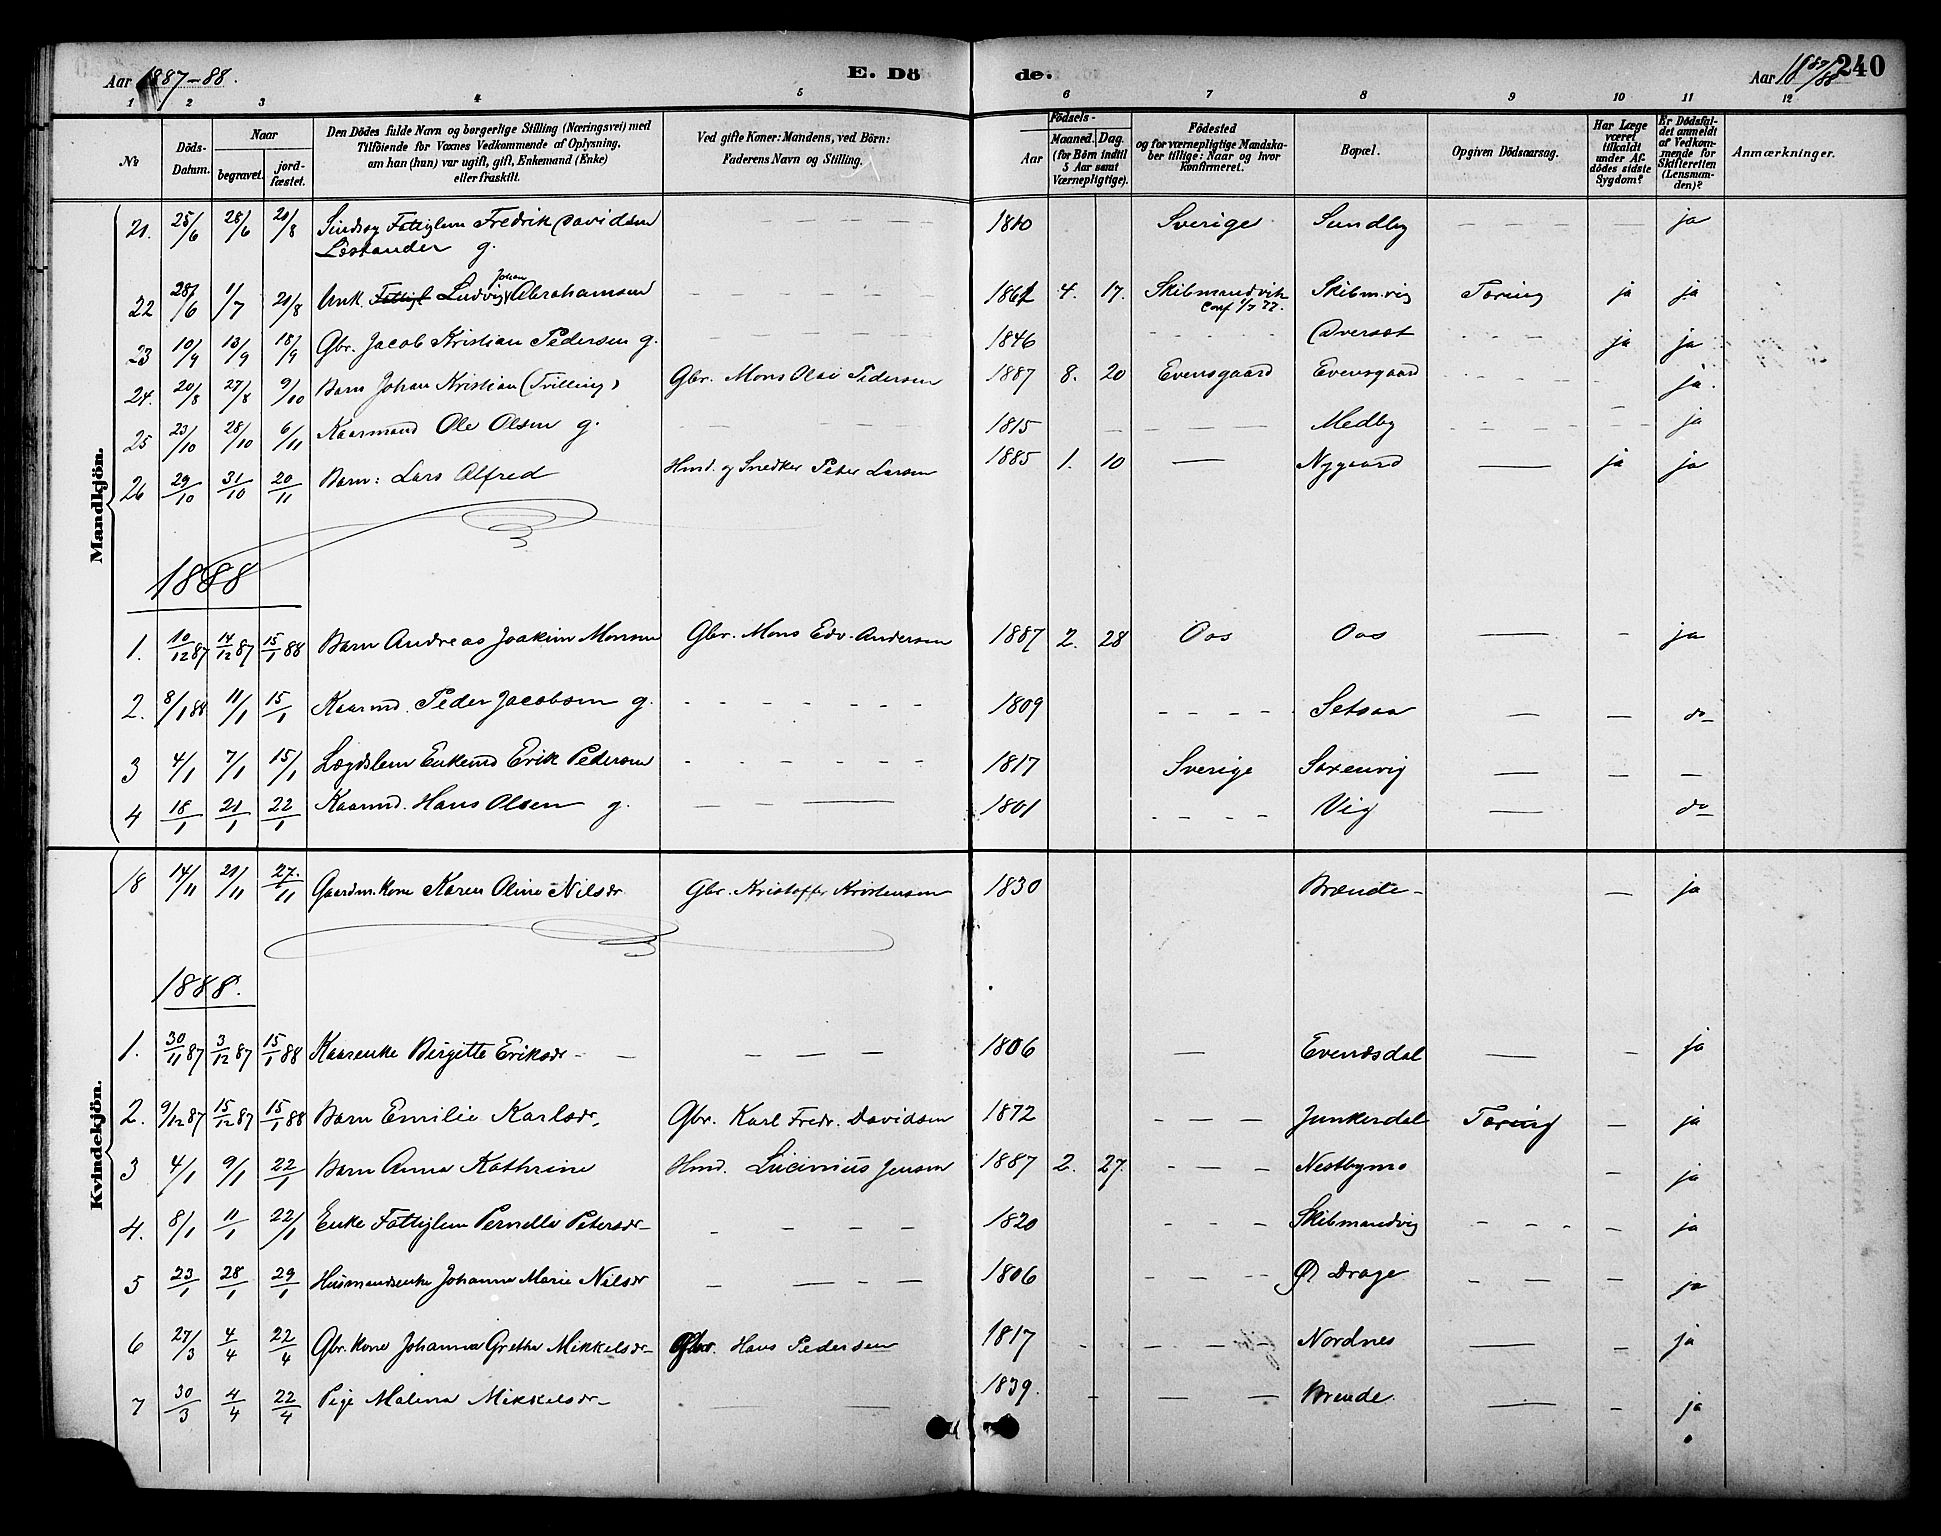 Aar 1887-88.
E. Dö
de.
Aar 1887/88
240
1 2 3 4 5 6 7 8 9 10 11 12
No
Döds-Datum.
Naar
begravet.
jord-fæstet.
Den Dödes fulde Navn og borgerlige Stilling (Næringsvei) med
Tilföiende for Voxnes Vedkommende af Oplysning,
om han (hun) var ugift, gift, Enkemand (Enke)
eller fraskilt.
Ved gifte Koner: Mandens, ved Börn:
Faderens Navn og Stilling.
Födsels-
Aar
Maaned. Dag.
(for Börn indtil
5 Aar samt
Værnepligtige).
Födested
og for værnepligtige Mandska-
ber tillige: Naar og hvor
konfirmeret.
Bopæl.
Opgiven Dödsaarsag.
Har Læge
været
tilkaldt
under Af-
dödes sidste
Sygdom?
Er Dödsfal-
det anmeldt
af Vedkom-
mende for
Skifteretten
(Lensman-
den)?
Anmærkninger.
Mandkjön.
21. 25/6 28/6 21/8 Sindssyg Fattiglem Fredrik Davidsen — 1810 Sverige Sundby — — ja
Lestander g.
22 28/6 1/7 21/8 Unk. Ludvig Johan Abrahamsen — 1862 4. 17. Skibmandvik Skibm.vig Tæring ja ja
Conf 1/7 77.
23 10/9 13/9 18/9 Gbr. Jacob Kristian Pedersen g. — 1846 — Øversæt — ja ja
24. 20/8 27/8 9/10 Barn Johan Kristian (Trilling) Gbr. Mons Olai Pedersen 1887 8. 20 Evensgaard Evensgaard — ja.
25 23/10 28/10 6/11 Kaarmand Ole Olsen g. — 1815 — Medby — — ja
26 29/10 31/10 20/11 Barn: Lars Alfred Hmd. og Snedker Peter Larsen 1885 1. 10 — Nygaard — ja ja
1888
1. 10/12 87 14/12 87 15/1 88 Barn Andreas Joakim Monsen Gbr. Mons Edv. Andersen 1887 2. 28 Oos Oos — — ja
2. 8/1 88 11/1 15/1 Kaarmd. Peder Jacobsen g. — 1809 — Setsaa — — do
3 4/1 7/1 15/1 Lægdslem Enkemd Erik Pedersen — 1817 Sverige Saxenvig — — —
4 18/1 21/1 22/1 Kaarmd. Hans Olsen g. — 1801 — Vig — do
Kvindekjön.
18 14/11 21/11 27./11 Gaardm. Kone Karen Oline Nilsdr Gbr. Kristoffer Kristensen 1830 Brænde — — ja
1888.
1. 30/11 87 3/12 87 15/1 88 Kaarenke Birgitte Eriksdr — 1806 — Evendsdal — — ja
2. 9/12 87 15/12 87 15/1 88 Barn Emilie Karlsdr. Gbr. Karl Fredr. Davidsen 1872 — Junkerdal Tæring — ja
3 4/1 9/1 22/1 Barn Anna Kathrine Hmd. Lucinius Jensen 1887 2. 27. — Nestbymo — ja
4. 8/1 11/1 22/1 Enke Fattiglem Pernelle Petersdr — 1820 — Skibmandvig — — ja
5 23/1 28/1 29/1 Husmandsenke Johanna Marie Nilsdr — 1806 — Ø Drage — — ja
6 27/3 4/4 22/4 Gbr. Kone Johanna Grethe Mikkelsdr Gbr. Hans Pedersen 1817 — Nordnes — — ja
7 30/3 4/4 22/4 Pige Malena Mikkelsdr — 1839. — Brende — — ja